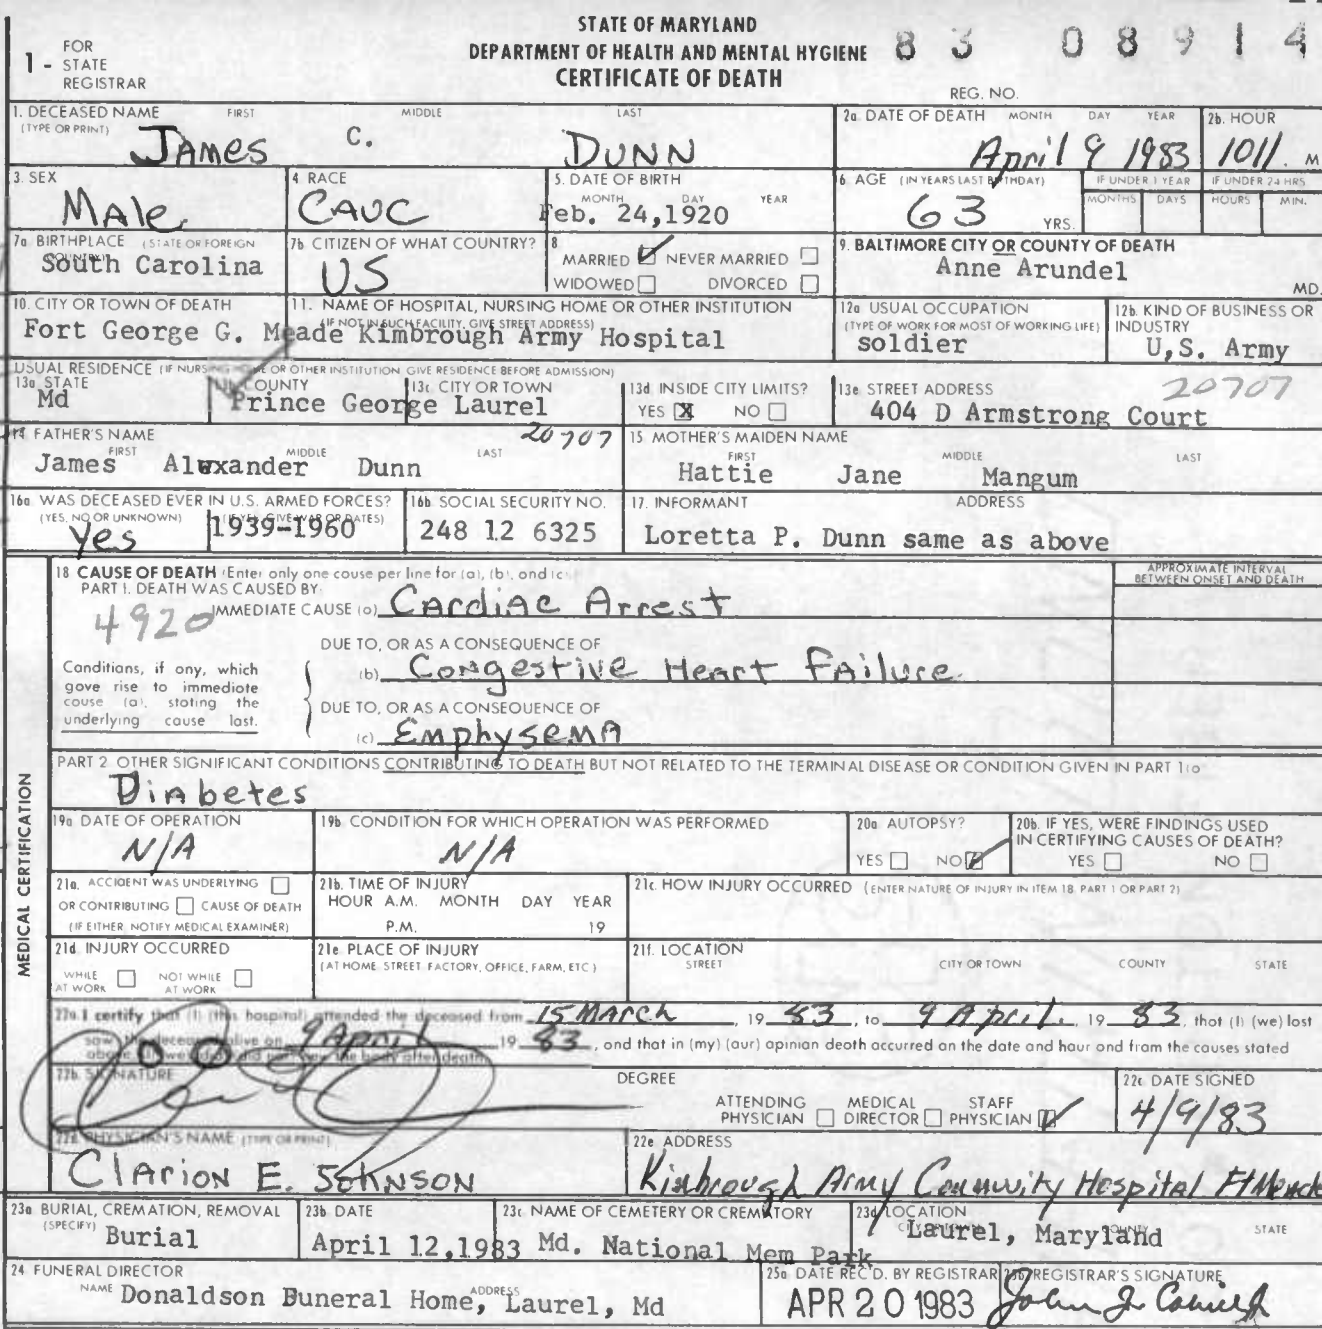 STATE OF MARYLAND
DEPARTMENT OF HEALTH AND MENTAL HYGIENE
CERTIFICATE OF DEATH
83 08914
1 - FOR STATE REGISTRAR
REG. NO.
1. DECEASED NAME FIRST MIDDLE LAST
(TYPE OR PRINT)
JAMES C. DUNN
2a DATE OF DEATH MONTH DAY YEAR
April 9 1983
2b. HOUR
1011. M
3. SEX
MAle
4. RACE
CAUC
5. DATE OF BIRTH
MONTH DAY YEAR
Feb. 24,1920
6. AGE (IN YEARS LAST BIRTHDAY)
63 YRS.
IF UNDER 1 YEAR
MONTHS DAYS
IF UNDER 24 HRS
HOURS MIN.
7a BIRTHPLACE (STATE OR FOREIGN COUNTRY)
South Carolina
7b CITIZEN OF WHAT COUNTRY?
US
8
MARRIED NEVER MARRIED
WIDOWED DIVORCED
9. BALTIMORE CITY OR COUNTY OF DEATH
Anne Arundel
MD.
10. CITY OR TOWN OF DEATH
Fort George G. Meade
11. NAME OF HOSPITAL, NURSING HOME OR OTHER INSTITUTION
(IF NOT IN SUCH FACILITY, GIVE STREET ADDRESS)
Kimbrough Army Hospital
12a USUAL OCCUPATION
(TYPE OF WORK FOR MOST OF WORKING LIFE)
soldier
12b. KIND OF BUSINESS OR INDUSTRY
U,S. Army
USUAL RESIDENCE (IF NURSING HOME OR OTHER INSTITUTION GIVE RESIDENCE BEFORE ADMISSION)
13a STATE
Md
COUNTY
Prince George
13c CITY OR TOWN
Laurel
20707
13d INSIDE CITY LIMITS?
YES X NO
13e STREET ADDRESS
20707
404 D Armstrong Court
14 FATHER'S NAME
FIRST MIDDLE LAST
James Alexander Dunn
15 MOTHER'S MAIDEN NAME
FIRST MIDDLE LAST
Hattie Jane Mangum
16a WAS DECEASED EVER IN U.S. ARMED FORCES?
(YES, NO OR UNKNOWN) (IF YES, GIVE WAR OR DATES)
Yes 1939-1960
16b SOCIAL SECURITY NO.
248 12 6325
17. INFORMANT ADDRESS
Loretta P. Dunn same as above
MEDICAL CERTIFICATION
18 CAUSE OF DEATH (Enter only one cause per line for (a), (b), and (c)
APPROXIMATE INTERVAL BETWEEN ONSET AND DEATH
PART I. DEATH WAS CAUSED BY:
4920
IMMEDIATE CAUSE (a) CArdiAc Arrest
DUE TO, OR AS A CONSEQUENCE OF
(b) Congestive Heart FAilure
Conditions, if any, which gave rise to immediate cause (a), stating the underlying cause last.
DUE TO, OR AS A CONSEQUENCE OF
(c) EmphysemA
PART 2 OTHER SIGNIFICANT CONDITIONS CONTRIBUTING TO DEATH BUT NOT RELATED TO THE TERMINAL DISEASE OR CONDITION GIVEN IN PART 1(a
DiAbetes
19a DATE OF OPERATION
N/A
19b CONDITION FOR WHICH OPERATION WAS PERFORMED
N/A
20a AUTOPSY?
YES NO
20b. IF YES, WERE FINDINGS USED IN CERTIFYING CAUSES OF DEATH?
YES NO
21a. ACCIDENT WAS UNDERLYING
OR CONTRIBUTING CAUSE OF DEATH
(IF EITHER, NOTIFY MEDICAL EXAMINER)
21b. TIME OF INJURY
HOUR A.M. MONTH DAY YEAR
P.M. 19
21c. HOW INJURY OCCURRED (ENTER NATURE OF INJURY IN ITEM 18 PART 1 OR PART 2)
21d INJURY OCCURRED
WHILE AT WORK NOT WHILE AT WORK
21e PLACE OF INJURY
(AT HOME STREET FACTORY, OFFICE, FARM, ETC)
21f. LOCATION
STREET CITY OR TOWN COUNTY STATE
22a I certify that (I) (this hospital) attended the deceased from 15 March, 19 83, to 9 April, 19 83, that (I) (we) lost
saw the deceased alive on 9 April 19 83, and that in (my) (our) opinion death occurred on the date and hour and from the causes stated
22b SIGNATURE
DEGREE
ATTENDING PHYSICIAN MEDICAL DIRECTOR STAFF PHYSICIAN
22c DATE SIGNED
4/9/83
22d PHYSICIAN'S NAME (TYPE OR PRINT)
ClArion E. JohnsoN
22e ADDRESS
Kimbrough Army Community Hospital Ft Meade
23a BURIAL, CREMATION, REMOVAL
(SPECIFY)
Burial
23b DATE
April 12,1983
23c NAME OF CEMETERY OR CREMATORY
Md. National Mem Park
23d LOCATION
COUNTY STATE
Laurel, Maryland
24 FUNERAL DIRECTOR
NAME ADDRESS
Donaldson Funeral Home, Laurel, Md
25a DATE REC'D. BY REGISTRAR
APR 20 1983
REGISTRAR'S SIGNATURE
John J.